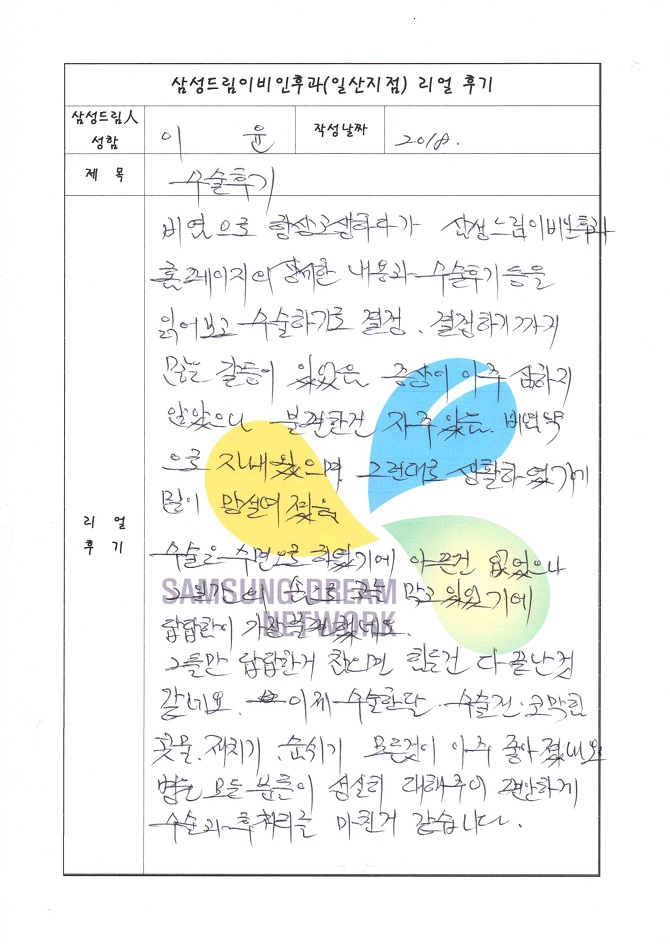 삼성드림이비인후과(일산지점) 리얼 후기
삼성드림人
성함
이 윤
작성날짜
2018.
제 목
수술후기
비염으로 항상고생하다가 삼성드림이비인후과
홈페이지의 상세한 내용과 수술후기 등을
읽어보고 수술하기로 결정. 결정하기까지
많은 갈등이 있었음 증상이 아주 심하지
않았으나 불편한건 자주 있는. 비염약
으로 지내왔으며 그런대로 생활하였기에
많이 망설여 졌음
리 얼
후 기
수술은 수면으로 하였기에 아픈건 없었으나
그 일간의 손으로 코를 막고 있었기에
답답함이 가장 불편했네요.
그들만 답답한거 참으면 힘든건 다 끝난것
같네요. 이제 수술한달. 수술전. 코막힘
콧물. 재치기. 숨쉬기 모든것이 아주 좋아졌네요
병원 모든 분들이 성실히 대해주어 편안하게
수술과 후처리를 마친거 같습니다.
SAMSUNG DREAM
NETWORK